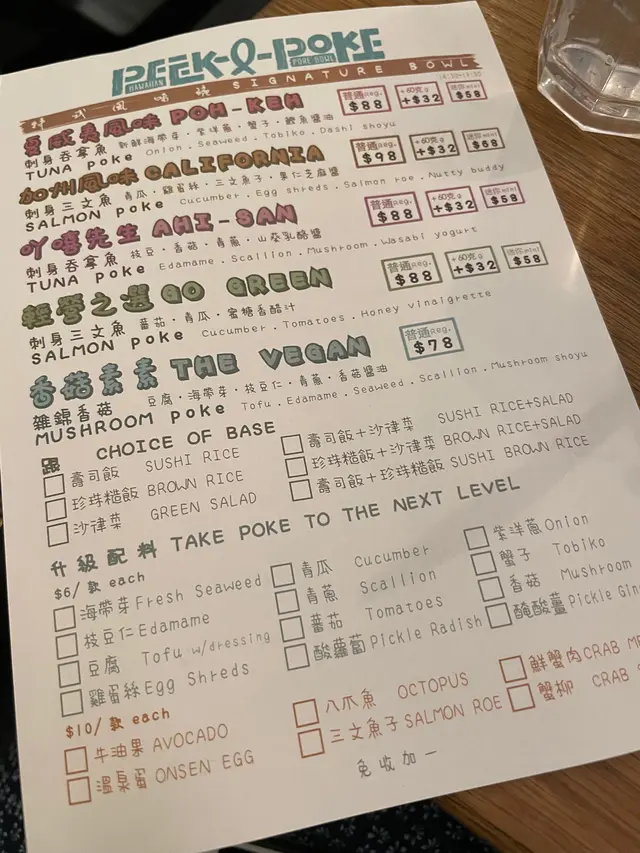 PEEK-A-POKE
HAWAIIAN POKE BOWL
特式風味碗 SIGNATURE BOWL
夏威夷風味 POH-KEH 普通Reg. $88 +60克g +$32 迷你mini $58
刺身吞拿魚 新鮮海帶芽·紫洋蔥·蟹子·鰹魚醬油
TUNA Poke Onion.Seaweed.Tobiko.Dashi shoyu
加州風味 CALIFORNIA 普通Reg. $98 +60克g +$32 迷你mini $58
刺身三文魚 青瓜·雞蛋絲·三文魚子·果仁芝麻醬
SALMON Poke Cucumber.Egg shreds.Salmon roe.Nutty buddy
吖嘻先生 AHI-SAN 普通Reg. $88 +60克g +$32 迷你mini $58
刺身吞拿魚 枝豆·香菇·青蔥·山葵乳酪醬
TUNA Poke Edamame.Scallion.Mushroom.Wasabi yogurt
輕營之選 GO GREEN 普通Reg. $88 +60克g +$32 迷你mini $58
刺身三文魚 蕃茄·青瓜·蜜糖香醋汁
SALMON Poke Cucumber.Tomatoes.Honey vinaigrette
香菇素素 THE VEGAN 普通Reg. $78
雜錦香菇 豆腐·海帶芽·枝豆仁·青蔥·香菇醬油
MUSHROOM Poke Tofu.Edamame.Seaweed.Scallion.Mushroom shoyu
跟 CHOICE OF BASE
壽司飯 SUSHI RICE 壽司飯+沙律菜 SUSHI RICE+SALAD
珍珠糙飯 BROWN RICE 珍珠糙飯+沙律菜 BROWN RICE+SALAD
沙律菜 GREEN SALAD 壽司飯+珍珠糙飯 SUSHI BROWN RICE
升級配料 TAKE POKE TO THE NEXT LEVEL
$6/款 each
海帶芽 Fresh Seaweed 青瓜 Cucumber 紫洋蔥 Onion
枝豆仁 Edamame 青蔥 Scallion 蟹子 Tobiko
豆腐 Tofu w/dressing 蕃茄 Tomatoes 香菇 Mushroom
雞蛋絲 Egg Shreds 酸蘿蔔 Pickle Radish 醃酸薑 Pickle
$10/款 each
牛油果 AVOCADO 八爪魚 OCTOPUS 鮮蟹肉 CRAB
溫泉蛋 ONSEN EGG 三文魚子 SALMON ROE 蟹柳 CRAB
免收加一